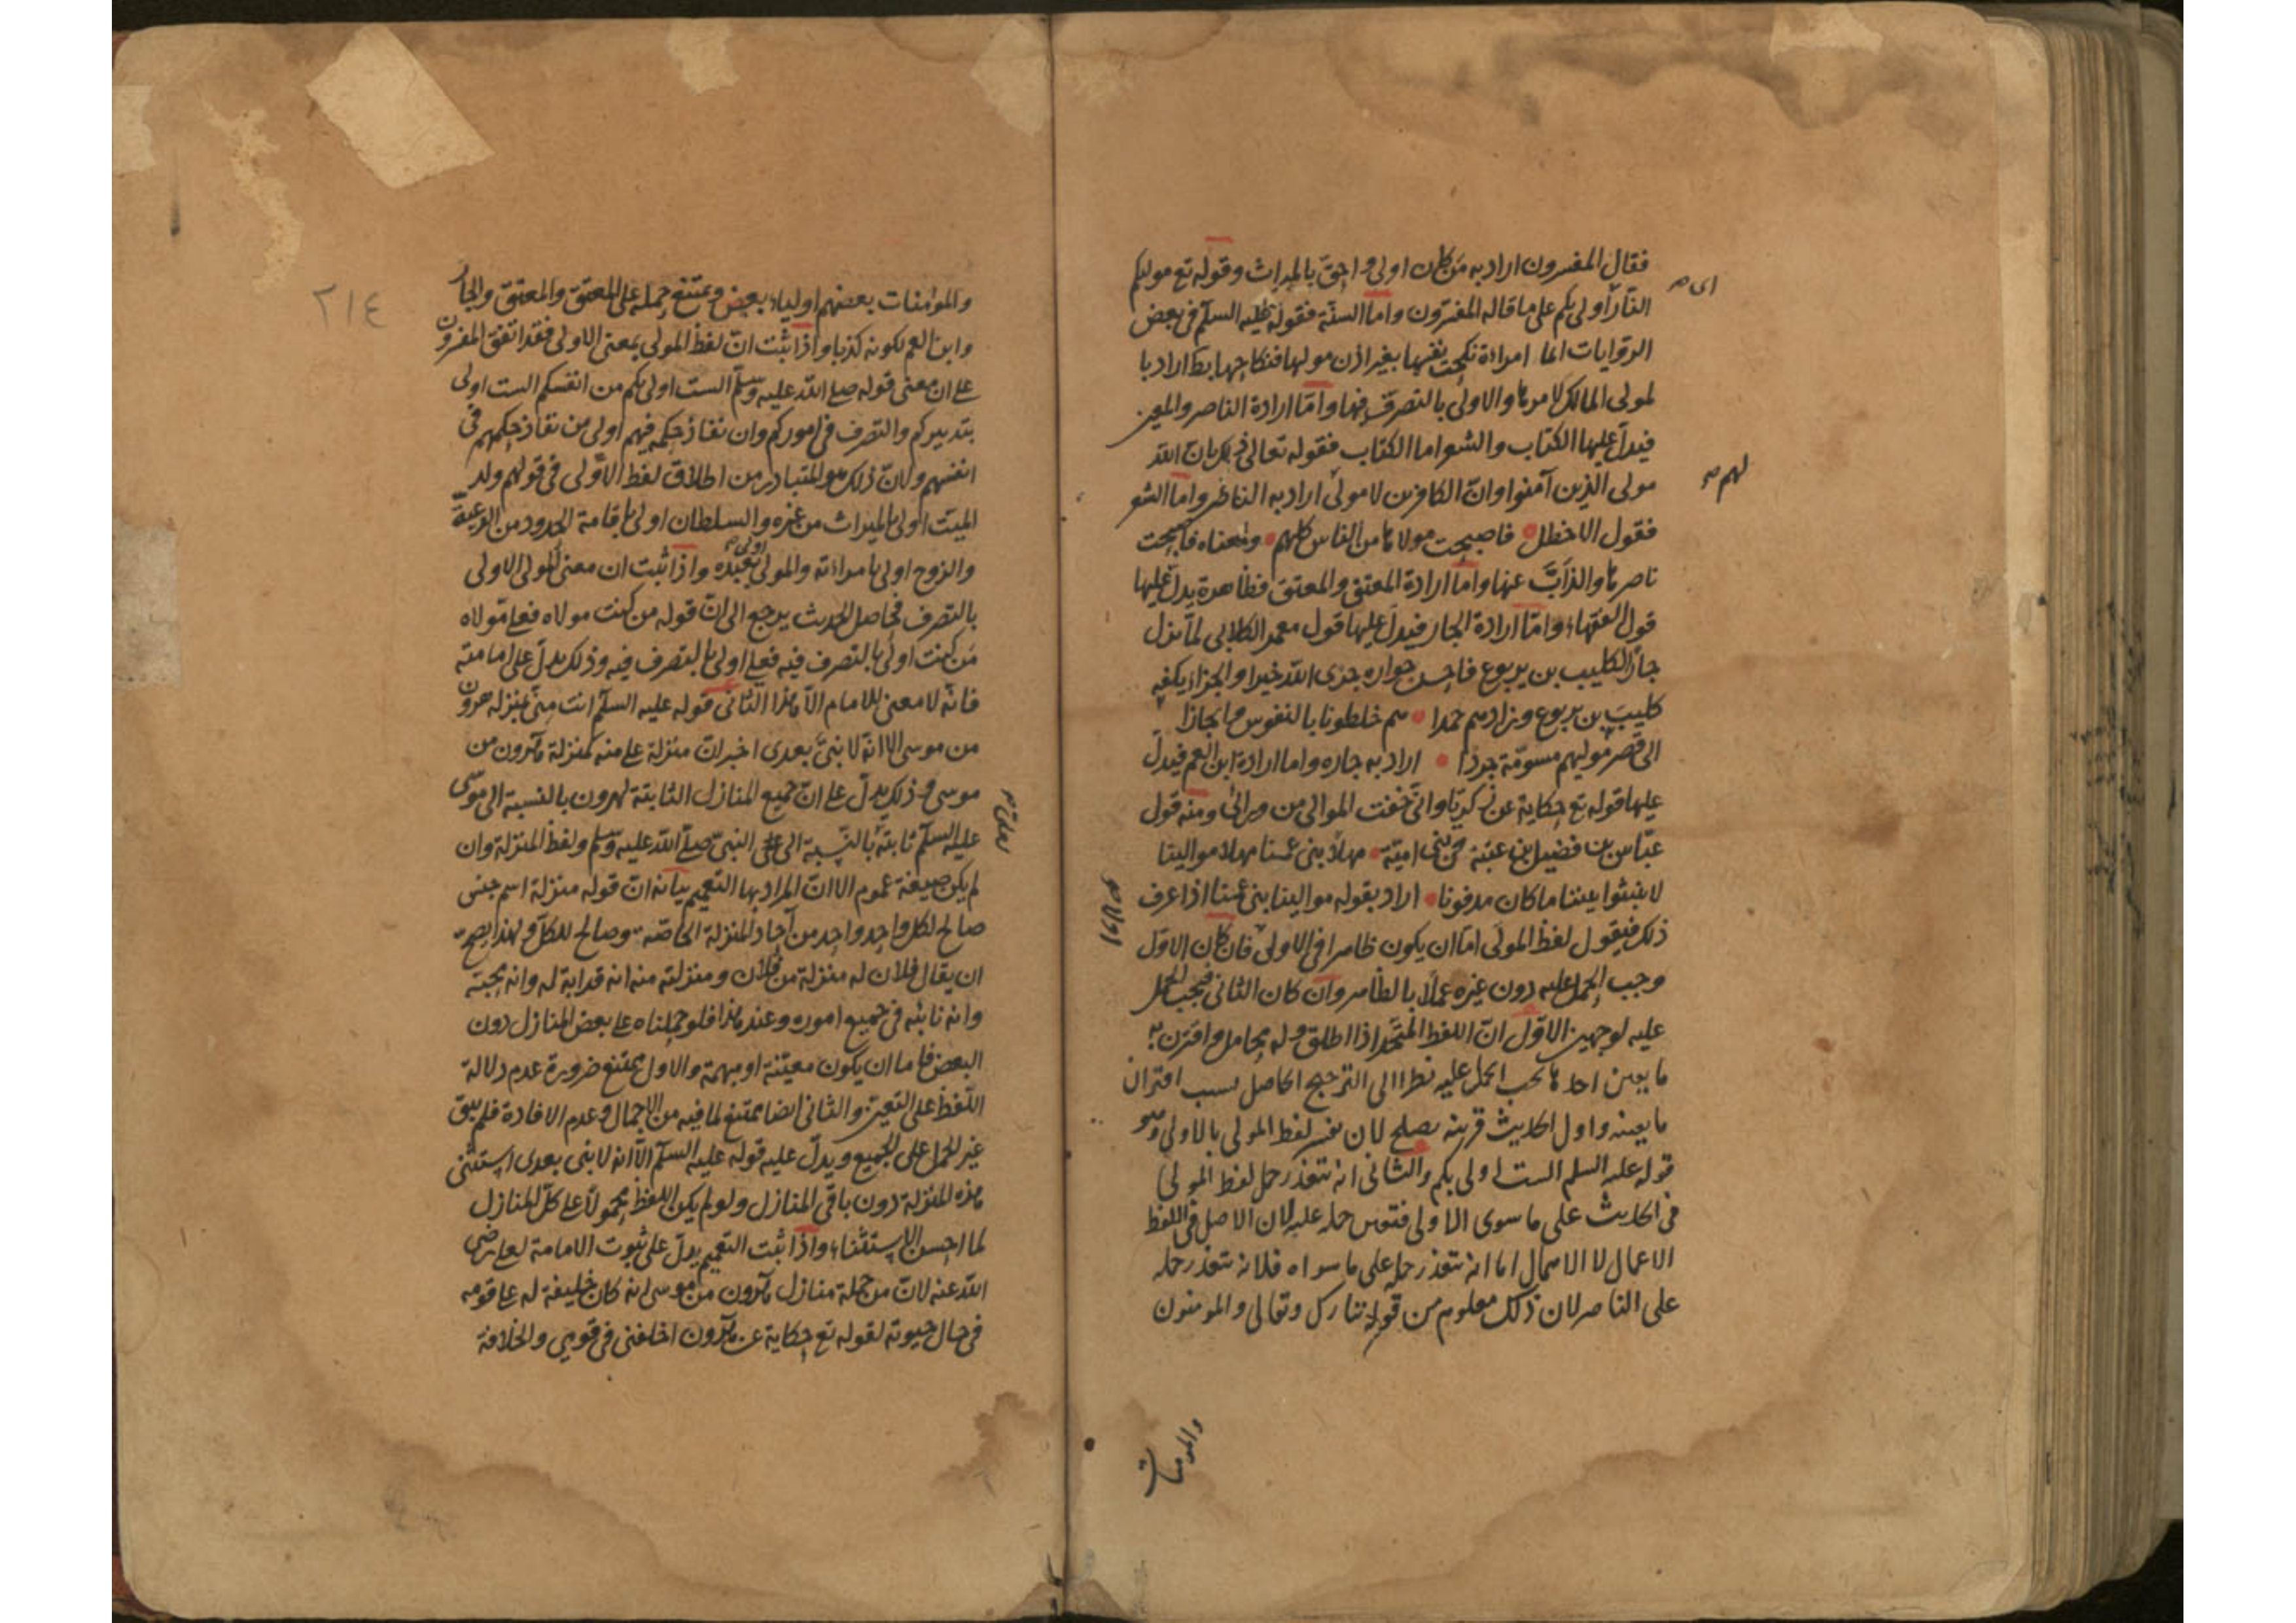 فقال المفسرون اراد به من كان اولى و احق بالميراث وقوله تع موليكم
اى صح
النار اولى بكم على ما قاله المفسرون واما السنة فقوله عليه السلم فى بعض
الروايات ايما امراءة نكحت نفسها بغير اذن موليها فنكاحها بط اراد با
لمولى المالك لامرها والاولى بالتصرف فيها واما ارادة الناصر والمعين
فيدل عليها الكتاب والشعر اما الكتاب فقوله تعالى ذلك بان الله
لهم صح
مولى الذين آمنوا وان الكافرين لا مولى اراد به الناصر واما الشعر
فقول الاخطل فاصبحت مولاها من الناس كلهم ومعناه فاصبحت
ناصرها والذاب عنها واما ارادة المعتق والمعتق فظاهرة يدل عليها
قول الفقهاء واما ارادة الجار فيدل عليها قول معمر الكلابى لما نزل
جارا لكليب بن يربوع فاحسن جواره جزى الله خيرا والجزاء بكفه
كليب بن يربوع وزادهم حمدا هم خلطونا بالنفوس
الى نصر موليهم مسومة جردا اراد به جاره واما ارادة ابن العم فيدل
عليها قوله تع حكاية عن زكريا وانى خفت الموالى من ورائى ومنه قول
عباس بن فضيل بن عتبة فى بنى امية مهلا بنى عمنا مهلا موالينا
لا تنبثوا بيننا ما كان مدفونا اراد بقوله موالينا بنى عمنا اذا عرف
ذلك فيقول لفظ المولى اما ان يكون ظاهرا فى الاولى فان كان الاول
او لا صح
وجب الحمل عليه دون غيره عملا بالظاهر وان كان الثانى فيجب الحمل
عليه لوجهين الاول ان اللفظ المتحد اذا اطلق وله محامل واقترن به
ما يعين احدها يجب الحمل عليه نظرا الى الترجيح الحاصل بسبب اقتران
ما يعينه واول الحديث قرينه يصلح لان تفسر لفظ المولى بالاولى وهو
قوله عليه السلم الست اولى بكم والثانى انه تتعذر حمل لفظ المولى
فى الحديث على ما سوى الاولى فتعين حمله عليه لان الاصل فى اللفظ
الاعمال لا الاهمال اما انه تتعذر حمله على ما سواه فلانه تتعذر حمله
على الناصر لان ذلك معلوم من قوله تبارك وتعالى والمومنون
والمومنات
٢١٤
والمؤمنات بعضهم اولياء بعض ويمتنع حمله على المعتق والمعتق والجار
وابن العم لكونه كذبا واذا ثبت ان لفظ المولى بمعنى الاولى فقد اتفق المفسرون
على ان معنى قوله صلى الله عليه وسلم الست اولى بكم من انفسكم الست اولى
بتدبيركم والتصرف فى اموركم وان نفاذ حكمه فيهم اولى من نفاذ حكمهم فى
انفسهم ولان ذلك هو المتبادر من اطلاق لفظ الاولى فى قولهم ولد
الميت اولى بالميراث من غيره والسلطان اولى باقامة الحدود من الرعية
والزوج اولى بامراءته والمولى بعبده واذا ثبت ان معنى المولى الاولى
اولى صح
بالتصرف فحاصل الحديث يرجع الى ان قوله من كنت مولاه فعلى مولاه
من كنت اولى بالتصرف فيه فعلى اولى بالتصرف فيه وذلك يدل على امامته
فانه لا معنى للامام الا هذا الثانى قوله عليه السلم انت منى بمنزله هرون
من موسى الا انه لا نبى بعدى اخبر ان منزلة على منه كمنزلة هرون من
موسى وذلك يدل على ان جميع المنازل الثابتة لهرون بالنسبة الى موسى
عليه السلم ثابتة بالنسبة الى على النبى صلى الله عليه وسلم ولفظ المنزلة وان
لم يكن صيغة عموم الا ان المراد بها التعميم بيانه ان قوله منزلة اسم جنس
صالح لكل واحد واحد من آحاد المنزلة الخاصة وصالح للكل ولهذا يصح
ان يقال فلان له منزلة من فلان ومنزلته منه انه قرابة له وانه يحبه
وانه نائبه فى جميع اموره وعند هذا فلو حملناه على بعض المنازل دون
البعض فاما ان يكون معينة او مبهمة والاول يمتنع ضرورة عدم دلالة
اللفظ على التعيين والثانى ايضا ممتنع لما فيه من الاجمال وعدم الافادة فلم يبق
غير الحمل على الجميع ويدل عليه قوله عليه السلم الا انه لا نبى بعدى استثنى
هذه المنزلة دون باقى المنازل ولو لم يكن اللفظ محمولا على كل المنازل
لما احسن الاستثناء واذا ثبت التعميم يدل على ثبوت الامامة لعلى رضى
الله عنه لان من جملة منازل هرون من موسى انه كان خليفة له على قومه
فى حال حيوته لقوله تع حكاية عن هرون اخلفنى فى قومى والخلافة